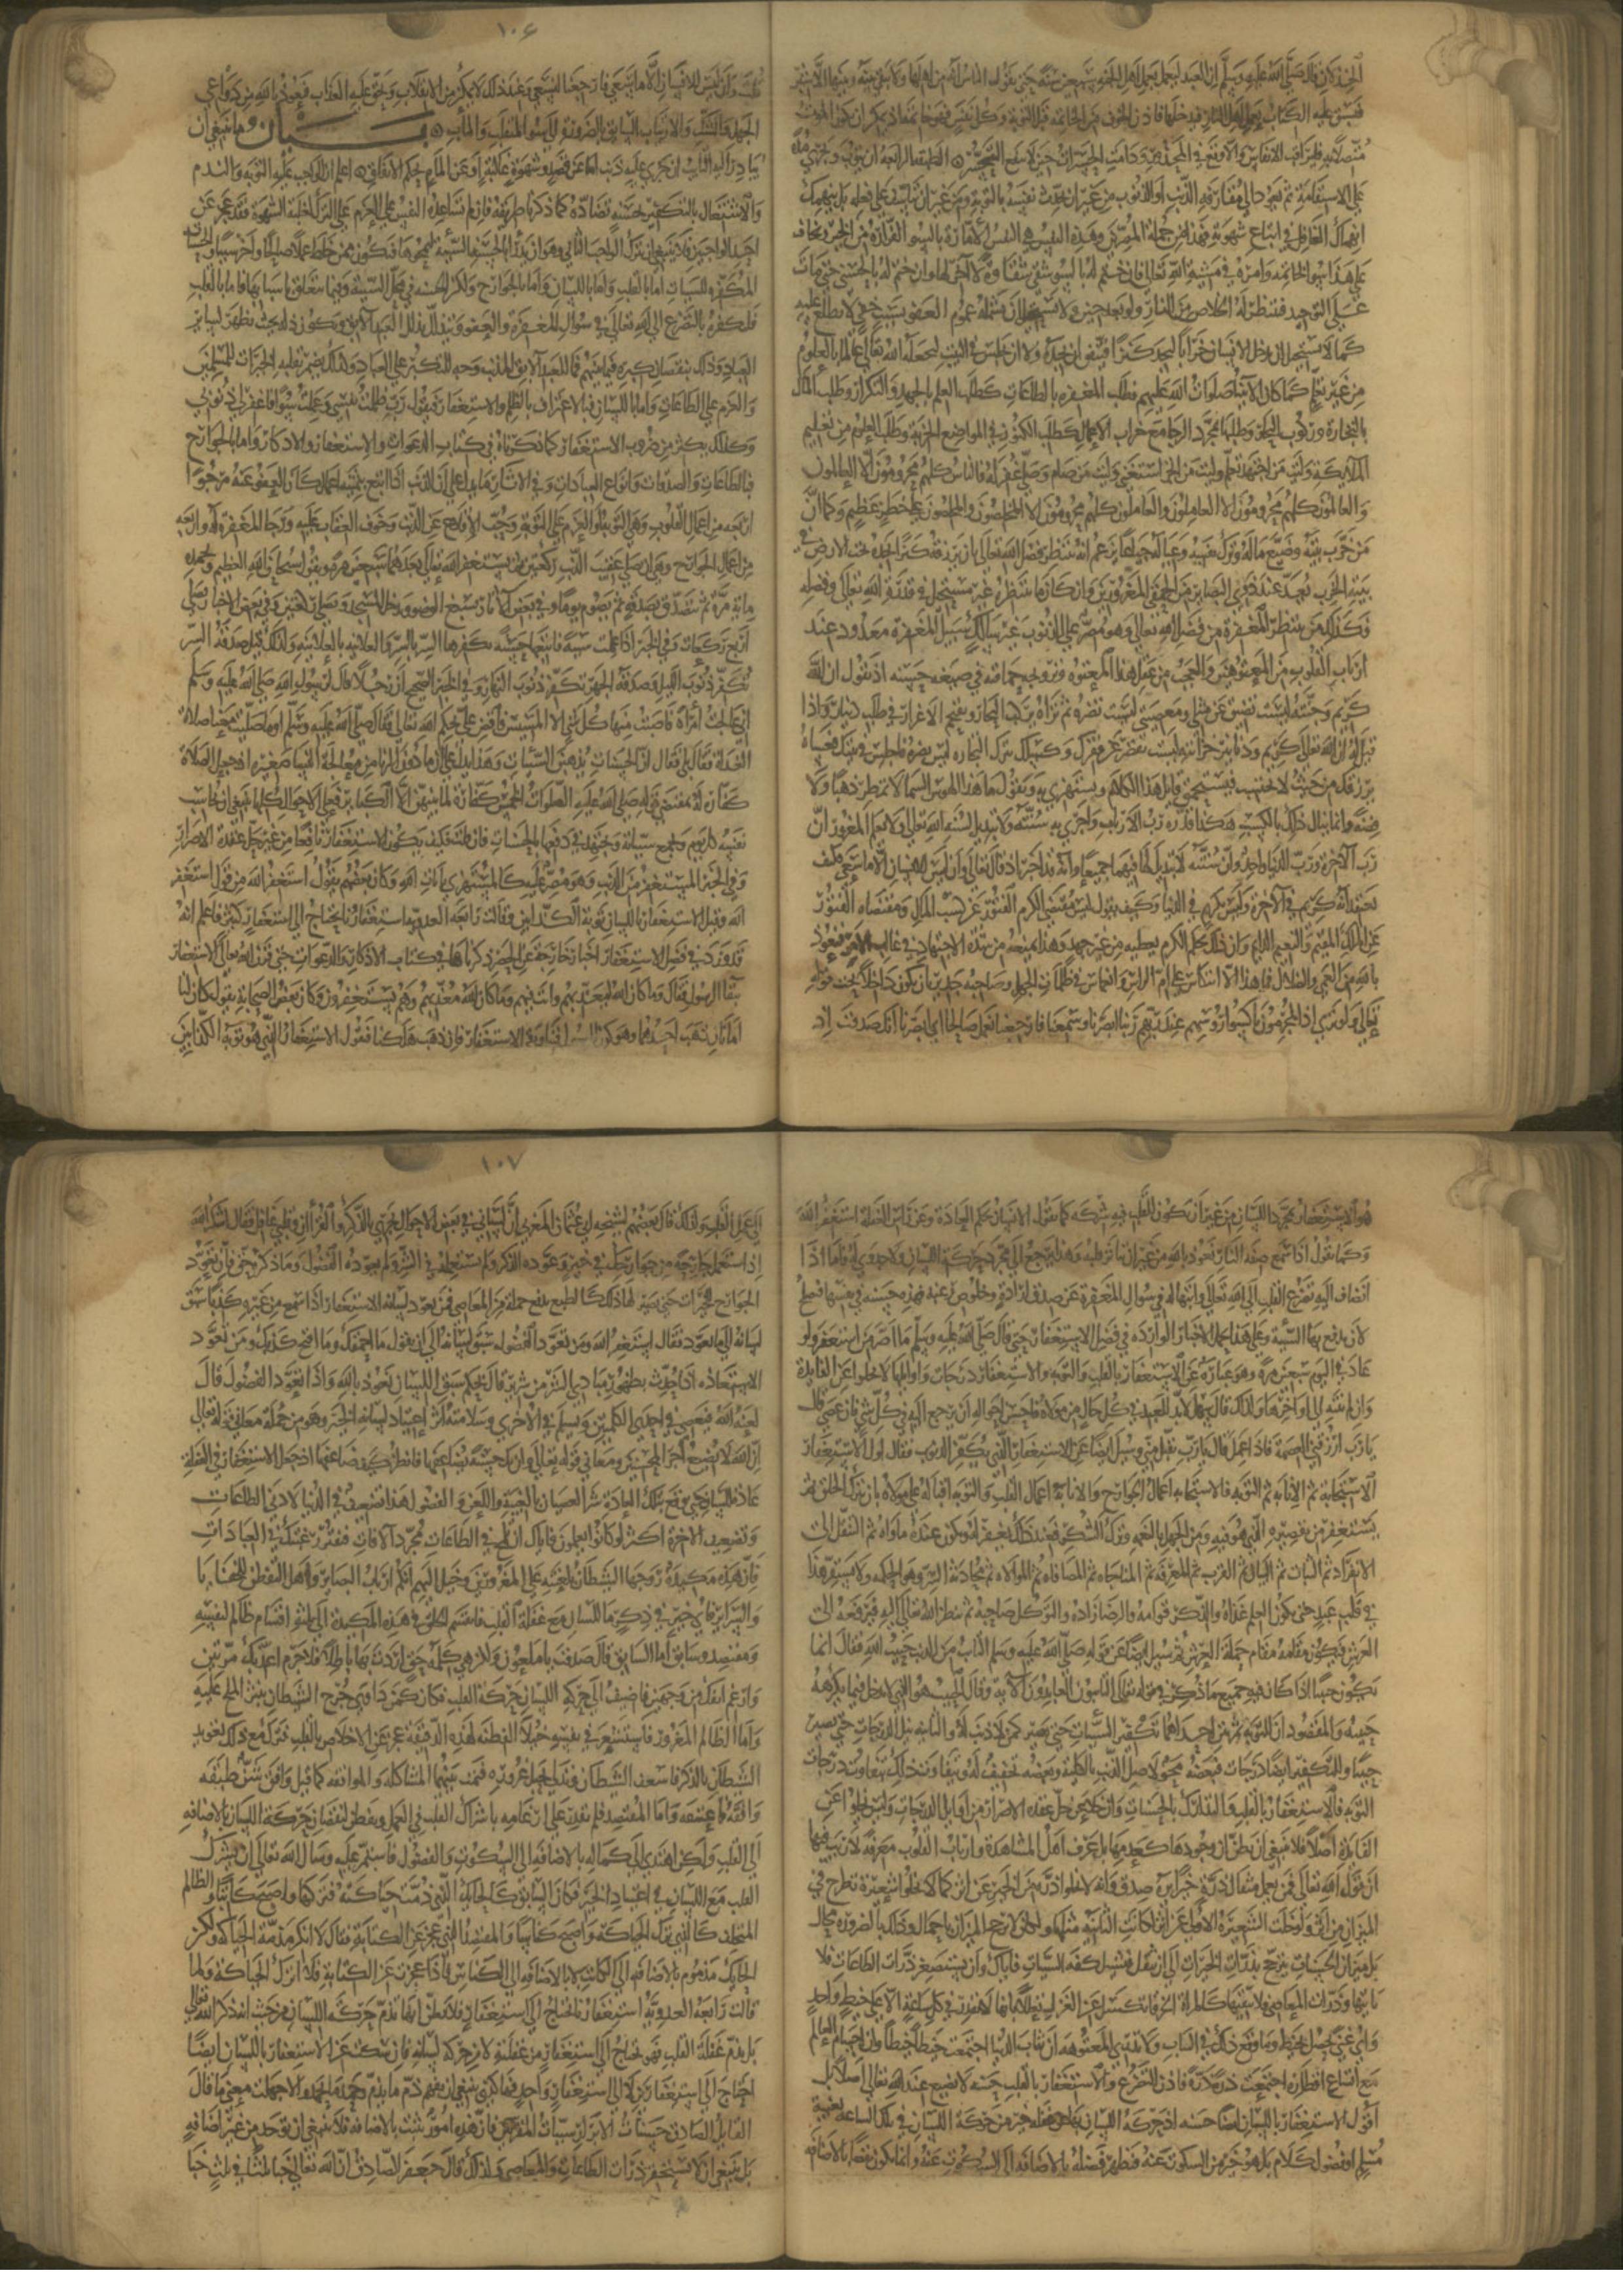 الخبر كان قال صلى الله عليه وسلم ان العبد ليعمل بعمل اهل الجنة سبعين سنة حتى يقول الناس انه من اهلها ولا يبقى بينه وبينها الا شبر
فيسبق عليه الكتاب فيعمل بعمل اهل النار فيدخلها فاذن الخوف من الخاتمة قبل التوبة وكل نفس فهو خاتمة ما قبله اذ يمكن ان يكون الموت
متصلا به فليراقب الانفاس والا وقع في المحذور ودامت الحسرات حين لا ينفع التحسر الطبقة الرابعة ان يتوب ويجري مدة
على الاستقامة ثم يعود الى مقارفة الذنب او الذنوب من غير ان يحدث نفسه بالتوبة ومن غير ان يتأسف على فعله بل ينهمك
انهماك الغافل في اتباع شهوته فهذا من جملة المصرين وهذه النفس هي النفس الامارة بالسوء الفرارة من الخير ويخاف
على هذا سوء الخاتمة وامره في مشيئة الله تعالى فان ختم له بالسوء شقي شقاوة لا آخر لها وان ختم له بالحسنى حتى مات
على التوحيد فينتظر له الخلاص من النار ولو بعد حين ولا يستحيل ان يشمله عموم العفو بسبب خفي لا يطلع عليه
كما لا يستحيل ان يدخل الانسان خرابا ليجد كنزا فيتفق ان يجده وان يجلس في البيت ليجعله الله تعالى عالما بالعلوم
من غير تعلم كما كان الانبياء صلوات الله عليهم فطلب المغفرة بالطاعات كطلب العلم بالجهد والتكرار وطلب المال
بالتجارة وركوب البحار وطلبها بمجرد الرجاء مع خراب الاعمال كطلب الكنوز في المواضع الخربة وطلب العلوم من تعليم
الملائكة وليت من اجتهد تعلم وليت من اتجر استغنى وليت من صام وصلى غفر له فالناس كلهم محرومون الا العالمون
والعالمون كلهم محرومون الا العاملون والعاملون كلهم محرومون الا المخلصون والمخلصون على خطر عظيم وكما ان
من خرب بيته وضيع ماله وترك نفسه وعياله جياعا يزعم انه ينتظر فضل الله تعالى بان يرزقه كنزا يجده تحت الارض في
بيته الخرب يعد عند ذوي البصائر من الحمقى المغرورين وان كان ما ينتظره غير مستحيل في قدرة الله تعالى وفضله
فكذلك من ينتظر المغفرة من فضل الله تعالى وهو مصر على الذنوب غير سالك سبيل المغفرة معدود عند
ارباب القلوب من المعتوهين والعجب من عقل هذا المعتوه وترويجه حماقته في صيغة حسنة اذ يقول ان الله
كريم وجنته ليست تضيق عن مثلي ومعصيتي ليست تضره ثم تراه يركب البحار ويقتحم الاوغار في طلب دينار واذا
قيل له ان الله تعالى كريم ودنانير خزائنه ليست تقصر عن فقرك وكسلك بترك التجارة ليس يضره فاجلس في بيتك فعساه
يرزقك من حيث لا تحتسب فيستحمق قايل هذا الكلام ويستهزئ به ويقول ما هذا الهوس السماء لا تمطر ذهبا ولا
فضة وانما ينال ذلك بالكسب هكذا قدره رب الارباب واجرى به سنته ولا تبديل لسنة الله تعالى ولا يعلم المغرور ان
رب الآخرة ورب الدنيا واحد وان سنته لا تبديل لها فيهما جميعا وانه قد اخبر اذ قال تعالى وان ليس للانسان الا ما سعى فكيف
يعتقد انه كريم في الآخرة وليس بكريم في الدنيا وكيف يقول ليس مقتضى الكرم الفتور عن كسب المال ومقتضاه الفتور
عن الملك المقيم والنعيم الدايم وان ذلك بحكم الكرم يعطيه من غير جهد وهذا يمنعه مع شدة الاجتهاد في غالب الامر فنعوذ
بالله من العمى والضلال فما هذا الا انتكاس على ام الراس وانغماس في ظلمات الجهل وصاحبه جدير بان يكون داخلا تحت قوله
تعالى ولو ترى اذ المجرمون ناكسوا روسهم عند ربهم ربنا ابصرنا وسمعنا فارجعنا نعمل صالحا اي ابصرنا انك صدقت اذ
١٠٦
قلت وان ليس للانسان الا ما سعى فارجعنا نسعى وعند ذلك لا يمكن من الانقلاب ويحق عليه العذاب فنعوذ بالله من دواعي
الجهل والشك والارتياب السايق بالضرورة الى سوء المنقلب والمآب بيان ما ينبغي ان
يبادر اليه التايب ان جرى عليه ذنب اما عن قصد وشهوة غالبة او عن المام بحكم الاتفاق اعلم ان الواجب عليه التوبة والندم
والاشتغال بالتكفير بحسنة تضاده كما ذكرنا طريقه فان لم تساعده النفس على العزم على الترك لغلبة الشهوة فقد عجز عن
احد الواجبين فلا ينبغي ان يترك الواجب الثاني وهو ان يدرأ بالحسنة السيئة ليمحوها فيكون ممن خلط عملا صالحا وآخر سيئا والحسنات
المكفرة للسيئات اما بالقلب واما باللسان واما بالجوارح ولتكن الحسنة في محل السيئة وفيما يتعلق باسبابها فاما بالقلب
فلتكفره بالتضرع الى الله تعالى في سؤال المغفرة والعفو ويتذلل تذلل العبد الآبق ويكون ذله بحيث يظهر لساير
العباد وذلك بنقصان كبره فيما بينهم فما للعبد الآبق المذنب وجه للتكبر على العباد وكذلك يضمر بقلبه الخيرات للمسلمين
والعزم على الطاعات واما باللسان فبالاعتراف بالظلم والاستغفار فيقول رب ظلمت نفسي وعملت سوءا فاغفر لي ذنوبي
وكذلك يكثر من ضروب الاستغفار كما ذكرناه في كتاب الدعوات والاستغفار والاذكار واما بالجوارح
فبالطاعات والصدقات وانواع العبادات وفي الاثار ما يدل على ان الذنب اذا اتبع بثمانية اعمال كان العفو عنه مرجوا
اربعة من اعمال القلوب وهي التوبة او العزم على التوبة وحب الاقلاع عن الذنب وخوف العقاب عليه ورجاء المغفرة له واربعة
من اعمال الجوارح وهي ان يصلي عقيب الذنب ركعتين ثم يستغفر الله تعالى بعدهما سبعين مرة ويقول سبحان الله العظيم وبحمده
ماية مرة ثم يتصدق بصدقة ثم يصوم يوما وفي بعض الآثار يسبغ الوضوء ويدخل المسجد ويصلي ركعتين وفي بعض الاخبار يصلي
اربع ركعات وفي الخبر اذا عملت سيئة فاتبعها حسنة تكفرها السر بالسر والعلانية بالعلانية ولذلك قيل صدقة السر
تكفر ذنوب الليل وصدقة الجهر تكفر ذنوب النهار وفي الخبر الصحيح ان رجلا قال لرسول الله صلى الله عليه وسلم
اني عالجت امراة فاصبت منها كل شي الا المسيس فاقض علي بحكم الله تعالى فقال صلى الله عليه وسلم اوما صليت معنا صلاة
الغداة فقال بلى فقال ان الحسنات يذهبن السيئات وهذا يدل على ان ما دون الزنا من معالجة النساء صغيرة اذ جعل الصلاة
كفارة له بمقتضى قوله صلى الله عليه الصلوات الخمس كفارة لما بينهن الا الكباير فعلى الاحوال كلها ينبغي ان يحاسب
نفسه كل يوم ويجمع سيئاته ويجتهد في دفعها بالحسنات فان قلت فكيف يكون الاستغفار نافعا من غير حل عقدة الاصرار
وفي الخبر المستغفر من الذنب وهو مصر عليه كالمستهزئ بآيات الله وكان بعضهم يقول استغفر الله من قول استغفر
الله وقيل الاستغفار باللسان توبة الكذابين وقالت رابعة العدوية استغفارنا يحتاج الى استغفار كثير فاعلم انه
قد ورد في فضل الاستغفار اخبار خارجة عن الحصر ذكرناها في كتاب الاذكار والدعوات حتى قرن الله تعالى الاستغفار
ببقاء الرسول فقال وما كان الله ليعذبهم وانت فيهم وما كان الله معذبهم وهم يستغفرون وكان بعض الصحابة يقول كان لنا
امانان ذهب احدهما وهو كون الرسول فينا وبقي الاستغفار فان ذهب هلكنا فنقول الاستغفار الذي هو توبة الكذابين
هو الاستغفار بمجرد اللسان من غير ان يكون للقلب فيه شركة كما يقول الانسان بحكم العادة وعن راس الغفلة استغفر الله
وكما يقول اذا سمع صفة النار نعوذ بالله من غير ان يتاثر قلبه وهذا يرجع الى مجرد حركة اللسان ولا جدوى له فاما اذا
انضاف اليه تضرع القلب الى الله تعالى وابتهاله في سؤال المغفرة عن صدق ارادة وخلوص رغبة فهذه حسنة في نفسها فتصلح
لان يدفع بها السيئة وعلى هذا يحمل الاخبار الواردة في فضل الاستغفار حتى قال صلى الله عليه وسلم ما اصر من استغفر ولو
عاد في اليوم سبعين مرة وهو عبارة عن الاستغفار بالقلب والتوبة والاستغفار درجات واوايلها لا تخلوا عن الفايدة
وان لم تنته الى اواخرها ولذلك قال سهل لا بد للعبد في كل حال من مولاه فاحسن احواله ان يرجع اليه في كل شي فان عصى قال
يا رب ارزقني العصمة فاذا عمل قال يا رب تقبل مني وسئل ايضا عن الاستغفار الذي يكفر الذنوب فقال اول الاستغفار
الاستجابة ثم الانابة ثم التوبة فالاستجابة اعمال الجوارح والانابة اعمال القلب والتوبة اقباله على مولاه بان يترك الخلق ثم
يستغفر من تقصيره الذي هو فيه ومن الجهل بالنعمة وترك الشكر فعند ذلك يغفر له ويكون عنده ماواه ثم التنقل الى
الانفراد ثم الثبات ثم البيان ثم القرب ثم المعرفة ثم المناجاة ثم المصافاة ثم الموالاة ثم محادثة السر وهو الحكمة ولا يستقر هذا
في قلب عبد حتى يكون العلم غذاه والذكر قوامه والرضا زاده والتوكل صاحبه ثم ينظر الله تعالى اليه فيرفعه الى
العرش فيكون مقامه مقام حملة العرش ثم سئل ايضا عن قوله صلى الله عليه وسلم التايب من الذنب حبيب الله فقال انما
يكون حبيبا اذا كان فيه جميع ما ذكر في قوله تعالى التايبون العابدون الآية وقال الحبيب هو الذي لا يدخل فيما يكرهه
حبيبه والمقصود ان للتوبة ثمرتين احداهما تكفير السيئات حتى يصير كمن لا ذنب له والثانية نيل الدرجات حتى يصير
حبيبا وللتكفير ايضا درجات فبعضه محو لاصل الذنب بالكلية وبعضه تخفيف له ويتفاوت ذلك بتفاوت درجات
التوبة فالاستغفار بالقلب والتدارك بالحسنات وان خلا عن حل عقدة الاصرار من اوايل الدرجات وليس يخلوا عن
الفايدة اصلا فلا ينبغي ان يظن ان وجودها كعدمها بل عرف اهل المشاهدة وارباب القلوب معرفة لا ريب فيها
ان قول الله تعالى فمن يعمل مثقال ذرة خيرا يره صدق وانه لا تخلوا ذرة من الخير عن اثر كما لا تخلوا شعيرة تطرح في
الميزان من اثر ولو خلت الشعيرة الاولى عن اثر لكانت الثانية مثلها ولكان لا يرجح الميزان باحمال وذلك بالضرورة محال
بل ميزان الحسنات يرجح بذرات الخيرات الى ان يثقل فتشيل كفة السيئات فاياك وان تستصغر ذرات الطاعات فلا
تاتيها وذرات المعاصي فلا تتقيها كالمراة الخرقاء تكسل عن الغزل تعللا بانها لا تقدر في كل ساعة الا على خيط واحد
واي غنى يحصل بخيط وما وقع ذلك في الثياب ولا تدري المعتوهة ان ثياب الدنيا اجتمعت خيطا خيطا وان اجسام العالم
مع اتساع اقطاره اجتمعت ذرة ذرة فاذن التضرع والاستغفار بالقلب حسنة لا تضيع عند الله تعالى اصلا بل
اقول الاستغفار باللسان ايضا حسنة اذ حركة اللسان بها عن غفلة خير من حركة اللسان في تلك الساعة بغيبة
مسلم او فضول كلام بل هو خير من السكوت عنه فتظهر فضله بالاضافة الى السكوت عنه وانما يكون نقصانا بالاضافة
١٠٧
الى عمل القلب ولذلك قال بعضهم لشيخه ابي عثمان المغربي ان لساني في بعض الاحوال يجري بالذكر والقرآن وقلبي غافل فقال اشكر الله
اذ استعمل جارحة من جوارحك في خير وعوده الذكر ولم تستعمله في الشر ولم يعوده الفضول وما ذكره حق فان تعود
الجوارح للخيرات حتى يصير لها ذلك كالطبع يدفع جملة من المعاصي فمن تعود لسانه الاستغفار اذا سمع من غيره كذبا سبق
لسانه الى ما تعود فقال استغفر الله ومن تعود الفضول سبق لسانه الى ان يقول ما احمقك وما اقبح كذبك ومن تعود
الاستعاذة اذا حدث بظهور مبادي الشر من شرير قال بحكم سبق اللسان نعوذ بالله واذا تعود الفضول قال
لعنه الله فيعصي في احدى الكلمتين ويسلم في الاخرى وسلامته اثر اعتياد لسانه الخير وهو من جملة معاني قوله تعالى
ان الله لا يضيع اجر المحسنين ومعاني قوله تعالى وان تك حسنة يضاعفها فانظر كيف ضاعفها اذ جعل الاستغفار في الغفلة
عادة اللسان حتى دفع بتلك العادة شر العصيان بالغيبة واللعن والفضول هذا تضعيف في الدنيا لادنى الطاعات
وتضعيف الآخرة اكثر لو كانوا يعلمون فاياك ان تلمح في الطاعات مجرد الآفات فتفتر رغبتك في العبادات
فان هذه مكيدة روجها الشيطان بلعنته على المغرورين وخيل اليهم انهم ارباب البصاير واهل التفطن للخفايا
والسراير فاي خير في ذكرنا باللسان مع غفلة القلب فانقسم الخلق في هذه المكيدة الى ثلاثة اقسام ظالم لنفسه
ومقتصد وسابق اما السابق قال صدقت يا ملعون ولكن هي كلمة حق اردت بها باطلا فلا جرم اعذبك مرتين
وارغم انفك من وجهين فاضيف الى حركة اللسان حركة القلب فكان كمن داوى جرح الشيطان بنثر الملح عليه
واما الظالم المغرور فاستشعر في نفسه خيلاء الفطنة لهذه الدقيقة ثم عجز عن الاخلاص بالقلب فترك مع ذلك تعويد
اللسان بالذكر فاسعف الشيطان وتدلى بحبل غروره فتمت بينهما المشاركة والموافقة كما قيل وافق شن طبقه
وافقه فاعتنقه واما المقتصد فلم يقدر على ارغامه باشراك القلب في العمل وتفطن لنقصان حركة اللسان بالاضافة
الى القلب ولكن اهتدى الى كماله بالاضافة الى السكوت والفضول فاستمر عليه وسال الله تعالى ان يشرك
القلب مع اللسان في اعتياد الخير فكان السابق كالحايك الذي ذمت حياكته فتركها واصبح كاتبا والظالم
المتخلف كالذي ترك الحياكة واصبح كناسا والمقتصد كالذي عجز عن الكتابة فقال لا انكر مذمة الحياكة ولكن
الحايك مذموم بالاضافة الى الكاتب لا بالاضافة الى الكناس فاذا عجزت عن الكتابة فلا اترك الحياكة ولما
قالت رابعة العدوية استغفارنا يحتاج الى استغفار فلا تظن انها تذم حركة اللسان من حيث انه ذكر الله تعالى
بل تذم غفلة القلب فهو يحتاج الى استغفار من غفلته لا من حركة لسانه فان سكت عن الاستغفار باللسان ايضا
احتاج الى استغفارين لا الى استغفار واحد فهكذا ينبغي ان يفهم ذم ما يذم وحمد ما يحمد والا جهلت معنى ما قال
القايل الصادق حسنات الابرار سيئات المقربين فان هذه امور تثبت بالاضافة فلا ينبغي ان تؤخذ من غير اضافة
بل ينبغي ان لا تستحقر ذرات الطاعات والمعاصي ولذلك قال جعفر الصادق ان الله تعالى خبأ ثلثا في ثلث خبأ